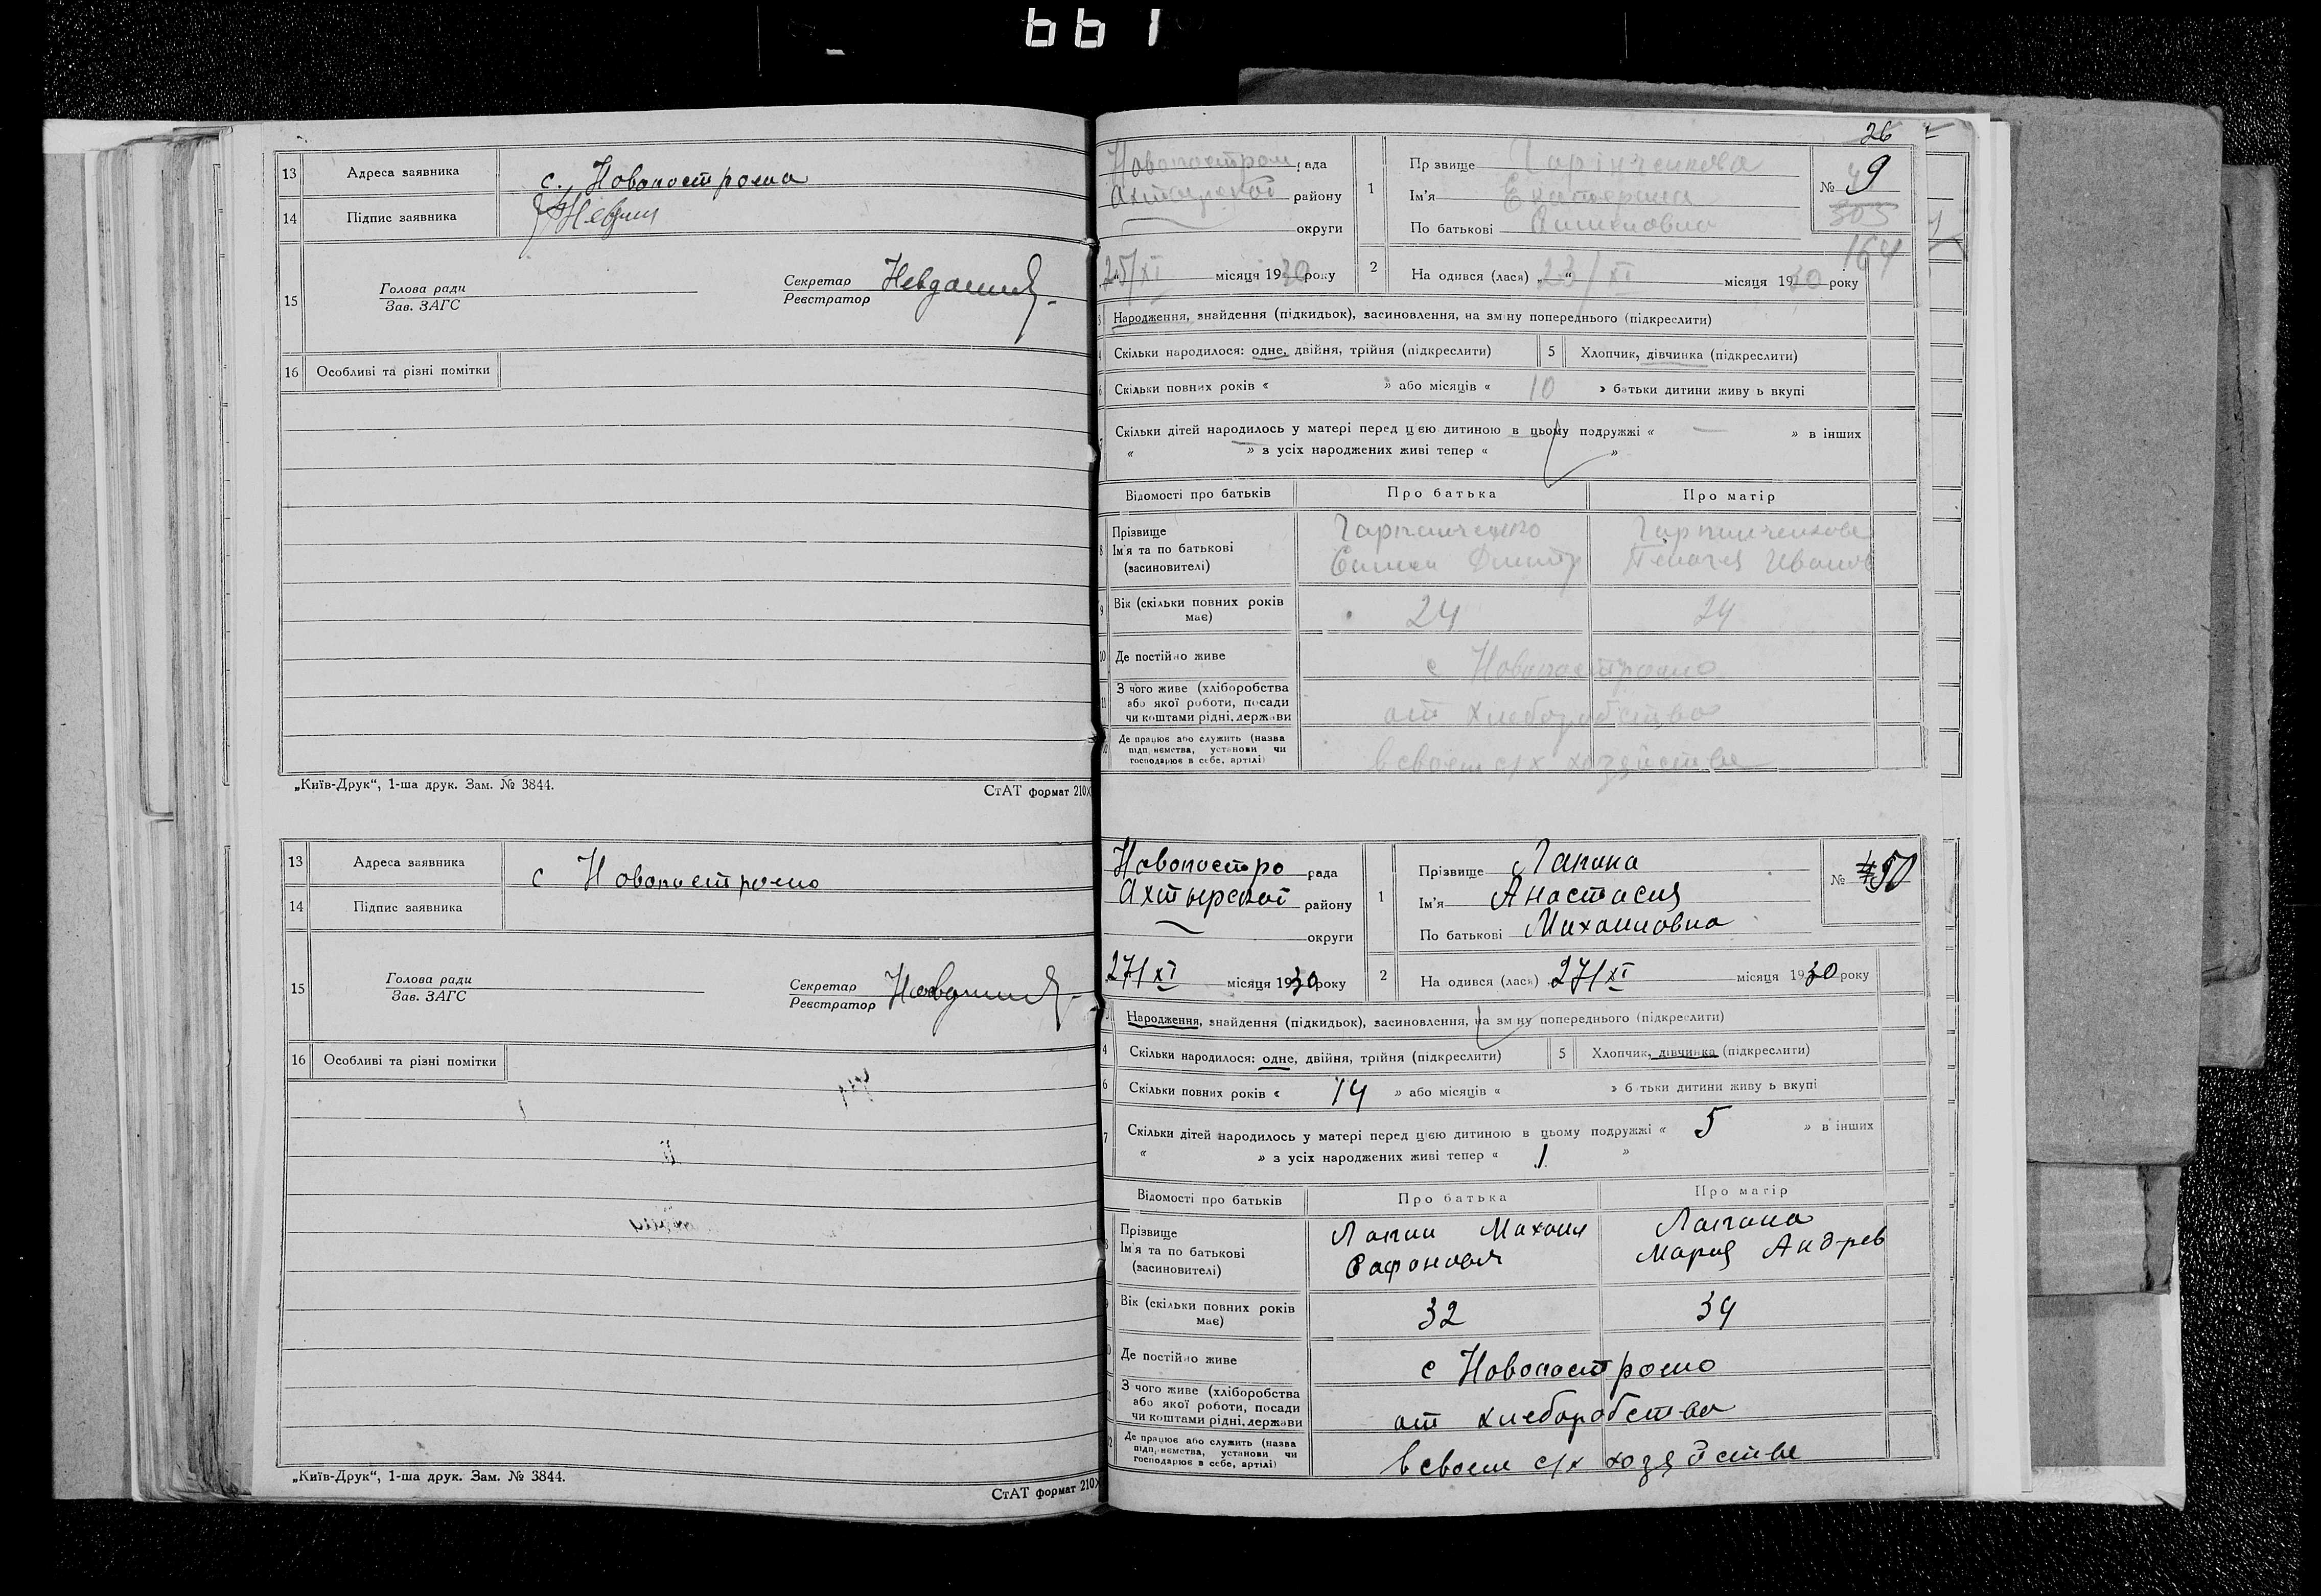 1 9 9
13 Адреса заявника с. Новопострома
14 Підпис заявника
15 Голова ради
Зав. ЗАГС
Секретар
Реєстратор
16 Особливі та різні помітки
„Київ-Друк“, 1-ша друк. Зам. № 3844.
СтАТ формат 210х
13 Адреса заявника с Новопострома
14 Підпис заявника
15 Голова ради
Зав. ЗАГС
Секретар
Реєстратор
16 Особливі та різні помітки
„Київ-Друк“, 1-ша друк. Зам. № 3844.
СтАТ формат 210х
26
Новопостром рада
Ахтырской району
округи
25/XI місяця 1930 року
1 Прізвище
Ім'я Екатерина
По батькові
№ 49
303
164
2 На одився (лася) „23“/XI місяця 1930 року
3 Народження, знайдення (підкидьок), засиновлення, на зміну попереднього (підкреслити)
4 Скільки народилося: одне, двійня, трійня (підкреслити) 5 Хлопчик, дівчинка (підкреслити)
6 Скільки повних років « » або місяців « 10 » батьки дитини живу ь вкупі
7 Скільки дітей народилось у матері перед цією дитиною в цьому подружжі « — » в інших
« — » з усіх народжених живі тепер « »
Відомості про батьків Про батька Про матір
8 Прізвище
Ім'я та по батькові
(засиновителі)
Пелагея Иванов
9 Вік (скільки повних років має) 24 24
10 Де постійно живе с Новопострома
11 З чого живе (хліборобства або якої роботи, посади чи коштами рідні, держави от хлеборобства
12 Де працює або служить (назва підприємства, установи чи господарює в себе, артілі) в своем с/х хозяйстве
Новопостро рада
Ахтырской району
округи
27/XI місяця 1930 року
1 Прізвище Лапина
Ім'я Анастасия
По батькові Михайловна
№ 50
2 На одився (лася) 27/XI місяця 1930 року
3 Народження, знайдення (підкидьок), засиновлення, на зміну попереднього (підкреслити)
4 Скільки народилося: одне, двійня, трійня (підкреслити) 5 Хлопчик, дівчинка (підкреслити)
6 Скільки повних років « 14 » або місяців « » батьки дитини живу ь вкупі
7 Скільки дітей народилось у матері перед цією дитиною в цьому подружжі « 5 » в інших
« » з усіх народжених живі тепер « 1 »
Відомості про батьків Про батька Про матір
8 Прізвище
Ім'я та по батькові
(засиновителі)
Лапин Михаил
Сафонович
Лапина
Мария Андрев
9 Вік (скільки повних років має) 32 34
10 Де постійно живе с Новопострома
11 З чого живе (хліборобства або якої роботи, посади чи коштами рідні, держави от хлеборобства
12 Де працює або служить (назва підприємства, установи чи господарює в себе, артілі) в своем с/х хозяйстве